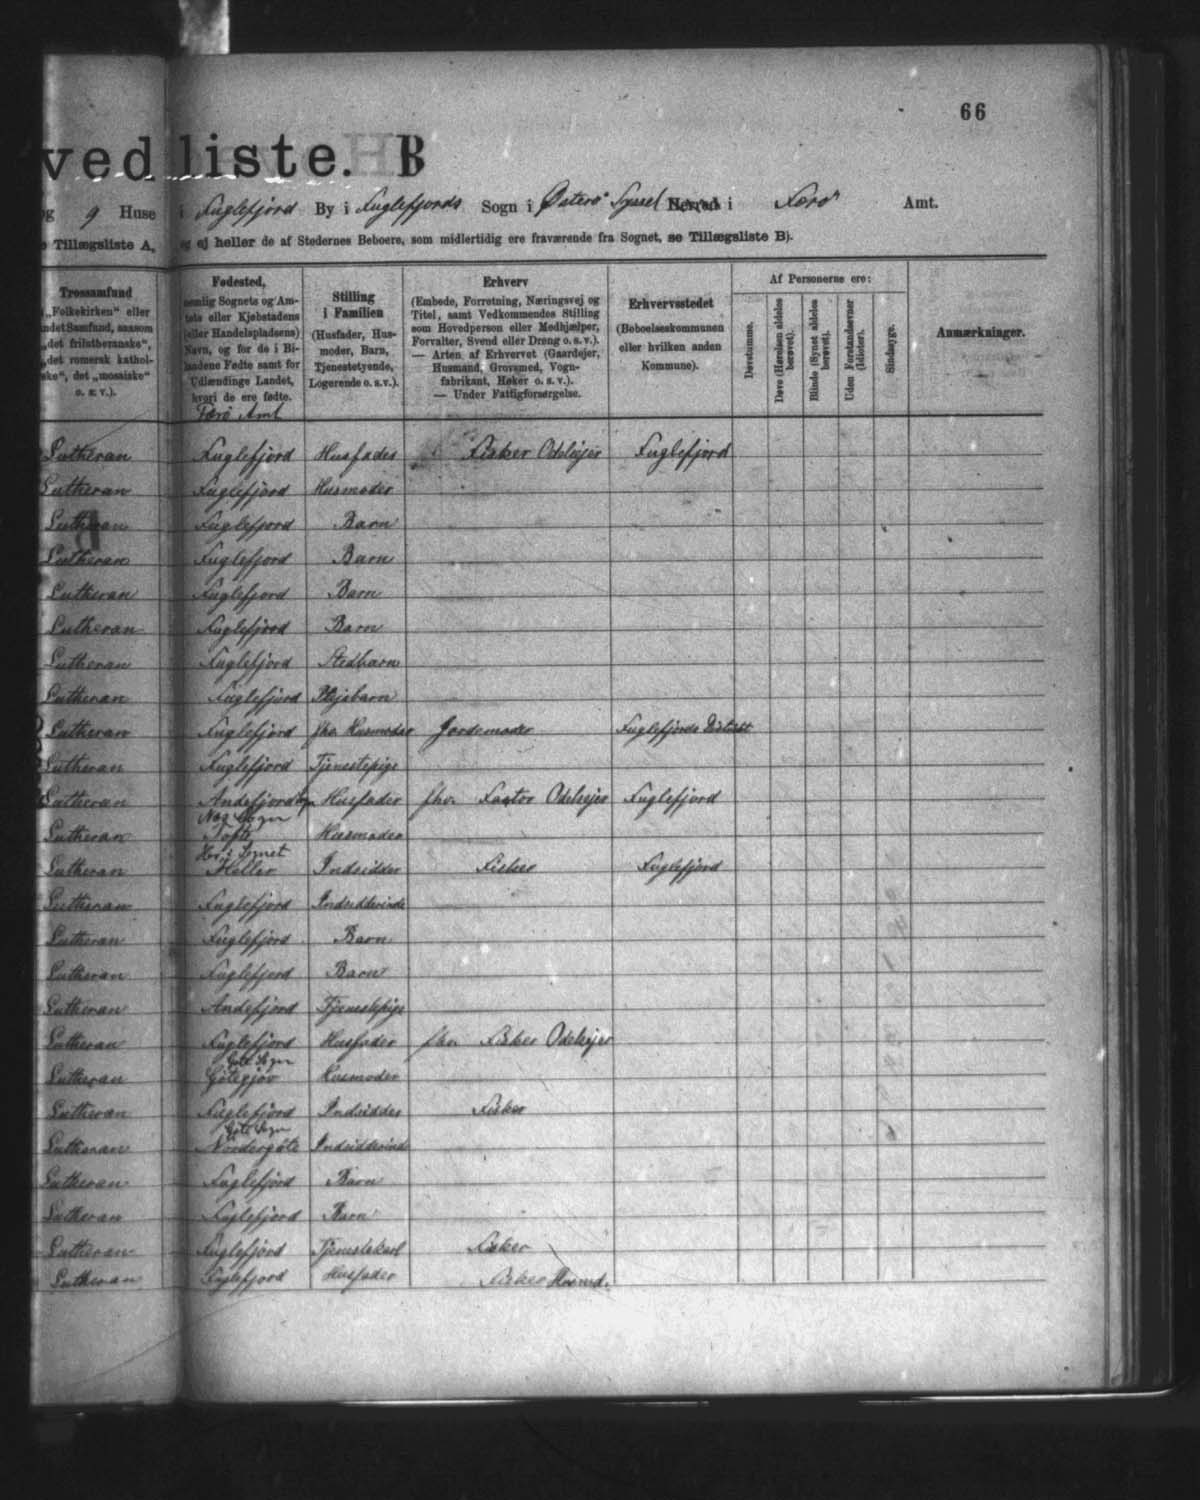 66
vedliste. B
og 9 Huse i Fuglefjord By i Fuglefjords Sogn i Østerø Syssel Herred i Færø Amt.
e Tillægsliste A, og ej heller de af Stedernes Beboere, som midlertidig ere fraværende fra Sognet, se Tillægsliste B).
Trossamfund
„Folkekirken“ eller
andet Samfund, saasom
„det frilutheranske“,
„det romersk kathol-
ske“, det „mosaiske“
o. s. v.).
Fødested,
nemlig Sognets og Am-
tets eller Kjøbstadens
(eller Handelspladsens)
Navn, og for de i Bi-
landene Fødte samt for
Udlændinge Landet,
hvori de ere fødte.
Færø Amt
Stilling
i Familien
(Husfader, Hus-
moder, Barn,
Tjenestetyende,
Logerende o. s. v.).
Erhverv
(Embede, Forretning, Næringsvej og
Titel, samt Vedkommendes Stilling
som Hovedperson eller Medhjælper,
Forvalter, Svend eller Dreng o. s. v.).
— Arten af Erhvervet (Gaardejer,
Husmand, Grovsmed, Vogn-
fabrikant, Høker o. s. v.).
— Under Fattigforsørgelse.
Erhvervsstedet
(Beboelseskommunen
eller hvilken anden
Kommune).
Af Personerne ere:
Døvstumme.
Døve (Hørelsen aldeles
berøvet).
Blinde (Synet aldeles
berøvet).
Uden Forstandsevner
(Idioter).
Sindssyge.
Anmærkninger.
Lutheran Fuglefjord Husfader Fisker Odelsejer Fuglefjord
Lutheran Fuglefjord Husmoder
Lutheran Fuglefjord Barn
Lutheran Fuglefjord Barn
Lutheran Fuglefjord Barn
Lutheran Fuglefjord Barn
Lutheran Fuglefjord Stedbarn
Lutheran Fuglefjord Plejebarn
Lutheran Fuglefjord fhv. Husmoder Jordemoder Fuglefjords Distrikt
Lutheran Fuglefjord Tjenestepige
Lutheran Andefjord Husfader fhv. Faktor Odelsejer Fuglefjord
Næs Sogn
Lutheran Tofte Husmoder
Her i Sognet
Lutheran Heller Indsidder Fisker Fuglefjord
Lutheran Fuglefjord Indsidderinde
Lutheran Fuglefjord Barn
Lutheran Fuglefjord Barn
Lutheran Andefjord Tjenestepige
Lutheran Fuglefjord Husfader fhv. Fisker Odelsejer
Gøte Sogn
Lutheran Götegjov Husmoder
Lutheran Fuglefjord Indsidder Fisker
Gøte Sogn
Lutheran Nordergøte Indsidderinde
Lutheran Fuglefjord Barn
Lutheran Fuglefjord Barn
Lutheran Fuglefjord Tjenestekarl Fisker
Lutheran Fuglefjord Husfader Fisker Husmd.